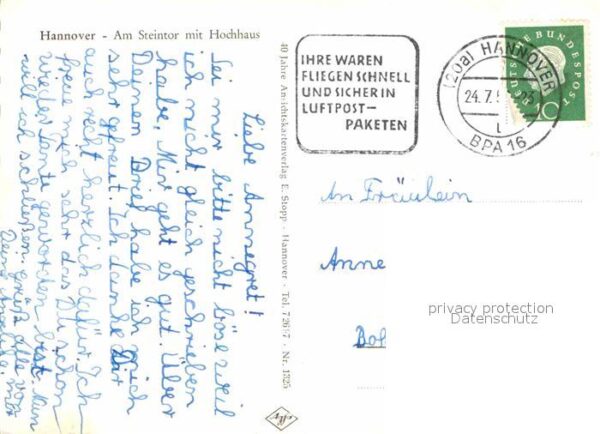 Hannover - Am Steintor mit Hochhaus
Liebe Annegret!
Sei mir bitte nicht böse weil
ich nicht gleich geschrieben
habe. Mir geht es gut. Über
Deinen Brief habe ich mich
sehr gefreut. Ich danke Dir
auch recht herzlich dafür. Ich
freue mich sehr das Du schon
wieder Tante geworden bist. Nun
will ich schließen, grüß alle von
Deine mir
40 Jahre Ansichtskartenverlag E. Stopp - Hannover - Tel. 72617 - Nr. 1325
IHRE WAREN
FLIEGEN SCHNELL
UND SICHER IN
LUFTPOST-
PAKETEN
(20a) HANNOVER
24.7.5
L
BPA 16
DEUTSCHE BUNDESPOST
10
An Fräulein
Anne
privacy protection
Datenschutz